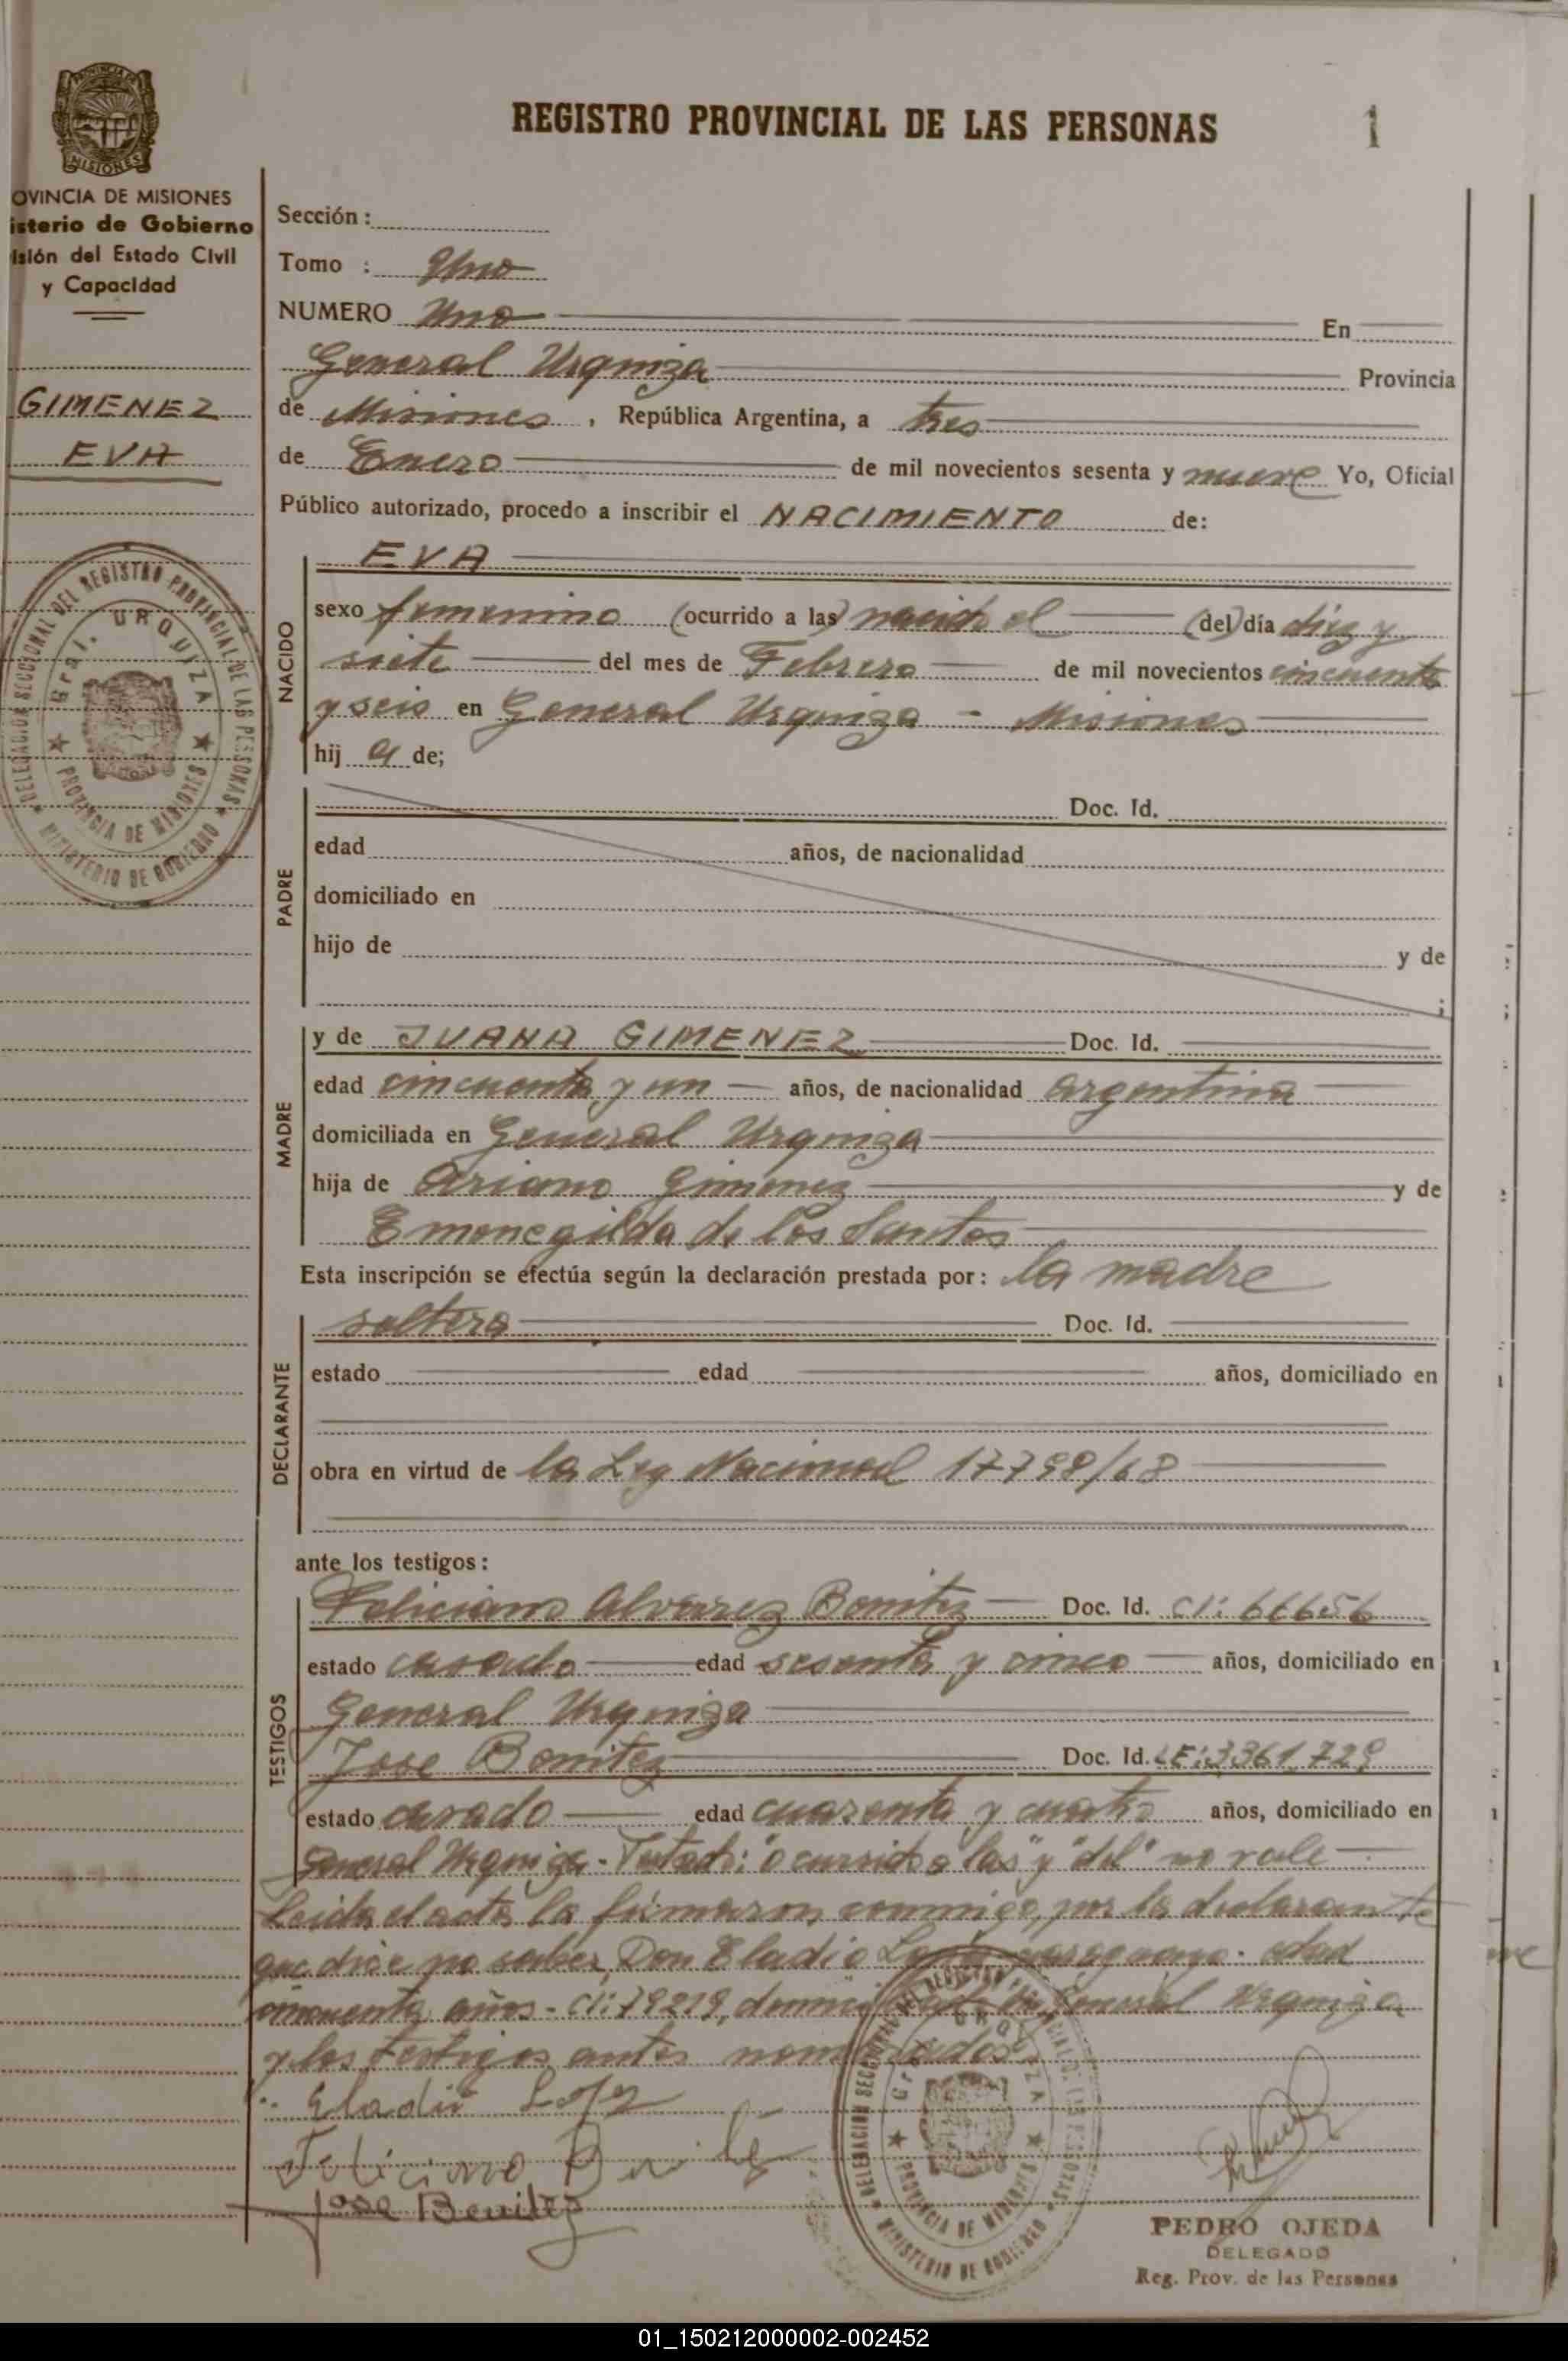 REGISTRO PROVINCIAL DE LAS PERSONAS
1
PROVINCIA DE
MISIONES
OVINCIA DE MISIONES
isterio de Gobierno
isión del Estado Civil
y Capacidad
GIMENEZ
EVA
DELEGACION SECCIONAL DEL REGISTRO PROVINCIAL DE LAS PERSONAS
Gral. URQUIZA
PROVINCIA DE MISIONES
MINISTERIO DE GOBIERNO
Sección :
Tomo : Uno
NUMERO Uno En
General Urquiza Provincia
de Misiones , República Argentina, a tres
de Enero de mil novecientos sesenta y nueve Yo, Oficial
Público autorizado, procedo a inscribir el NACIMIENTO de:
NACIDO
EVA
sexo femenino (ocurrido a las) nacida el (del) día diez y
siete del mes de Febrero de mil novecientos cincuenta
y seis en General Urquiza - Misiones
hij a de;
PADRE
Doc. Id.
edad años, de nacionalidad
domiciliado en
hijo de y de
;
MADRE
y de JUANA GIMENEZ Doc. Id.
edad cincuenta y un años, de nacionalidad argentina
domiciliada en General Urquiza
hija de Ariano Gimenez y de
Emenegilda de los Santos
Esta inscripción se efectúa según la declaración prestada por: la madre
DECLARANTE
soltera Doc. Id.
estado edad años, domiciliado en
obra en virtud de la Ley Nacional 17798/68
ante los testigos :
TESTIGOS
Feliciano Alvarez Benitez Doc. Id. CI: 66656
estado casado edad sesenta y cinco años, domiciliado en
General Urquiza
Jose Benitez Doc. Id. LE: 3361.729
estado casado edad cuarenta y cuatro años, domiciliado en
General Urquiza - Testado: "ocurrido a las" y "del" no vale
Leida el acta la firmaron conmigo, por la declarante
que dice no saber, Don Eladio paraguayo. edad
cincuenta años - CI: 79219, General Urquiza
y los testigos antes nombrados
Eladio
Feliciano
Jose Benitez
DELEGACION SECCIONAL
PROVINCIA DE MISIONES
MINISTERIO DE GOBIERNO
PEDRO OJEDA
DELEGADO
Reg. Prov. de las Personas
01_150212000002-002452